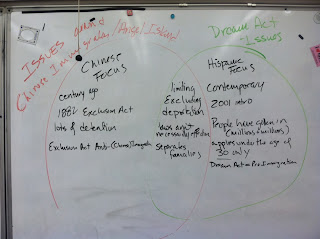 ISSUES around
Chinese Immigration / Angel Island
Chinese
Focus
century ago
1882 Exclusion Act
lots of detention
Exclusion Act Anti-(Chinese) Immigrants
limiting
Excluding
deportation
laws aren't
necessarily effective
separates
families
Dream Act
Issues
Hispanic
Focus
Contemporary
2001 intro
People have gotten in
(millions & millions)
applies under the age of
30 only
Dream Act = Pro Immigration